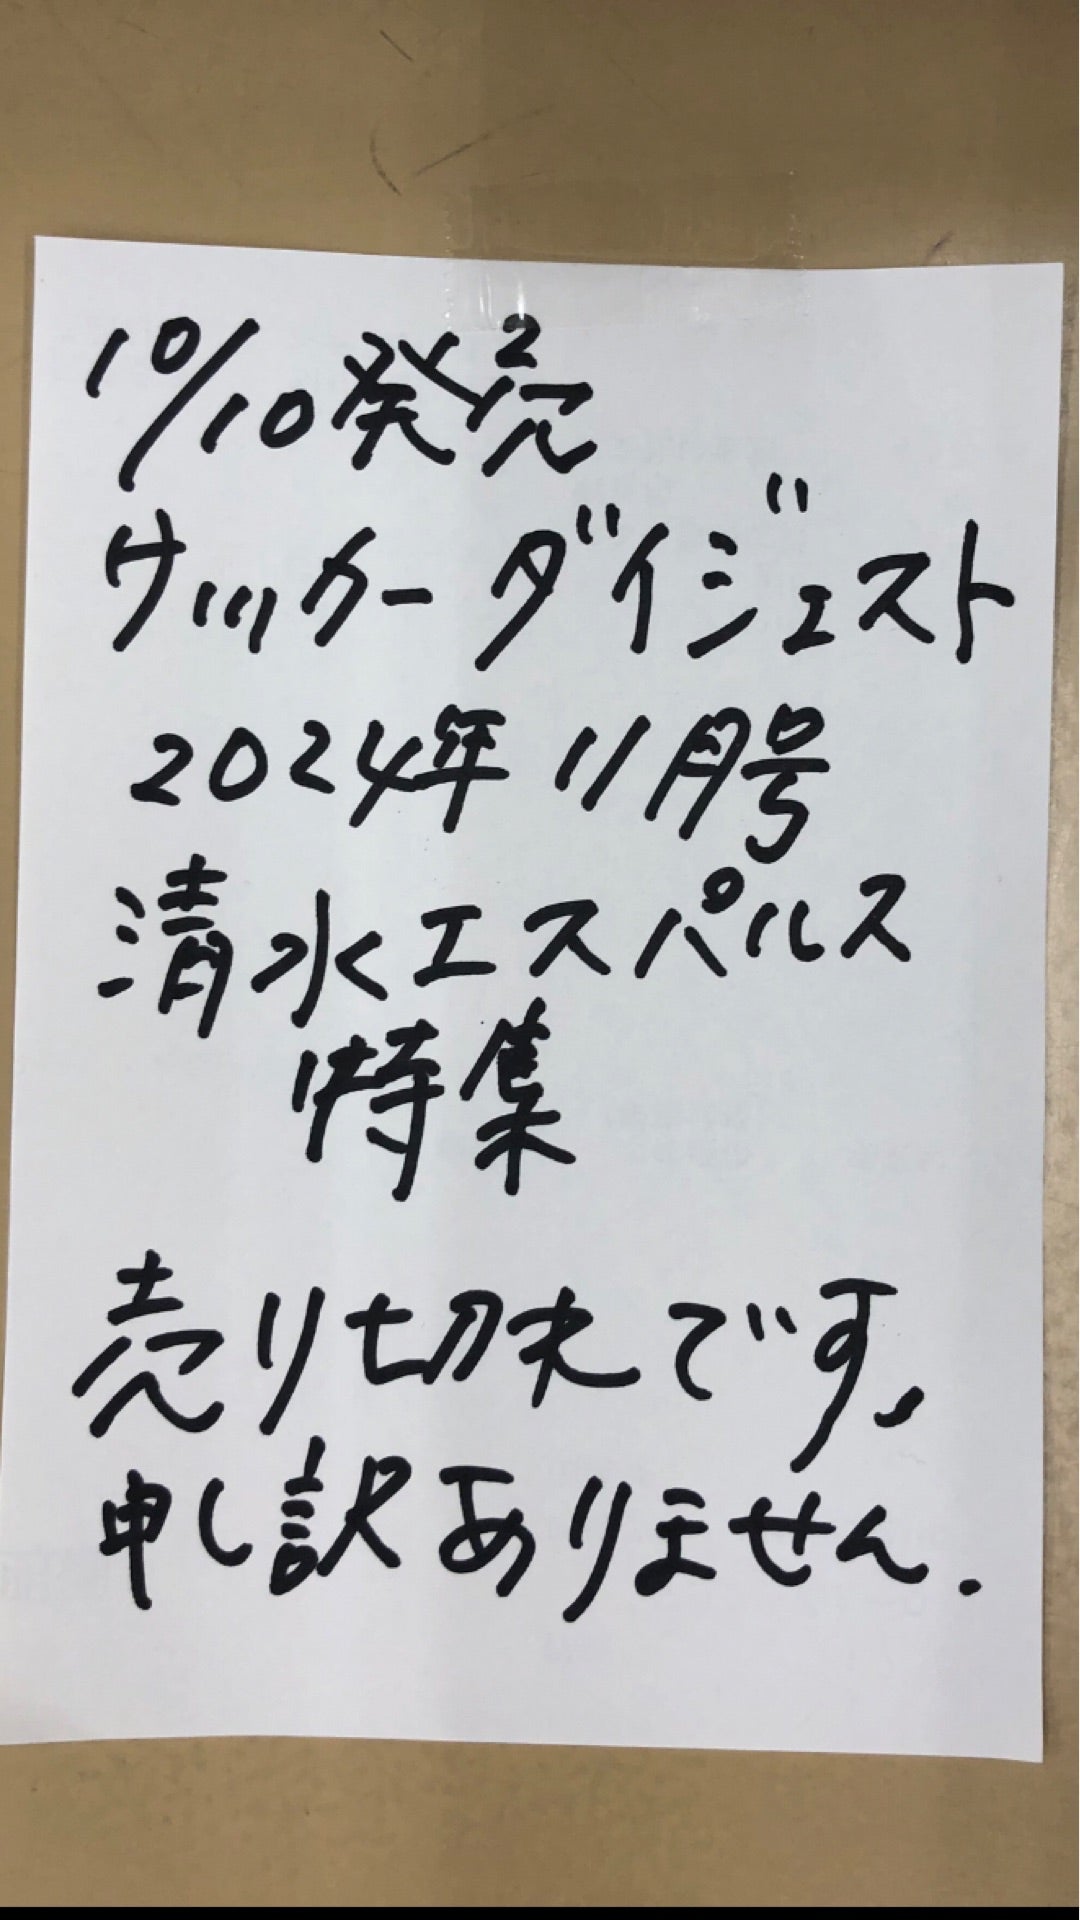 10/10発売
サッカーダイジェスト
2024年11月号
清水エスパルス
特集
売り切れです、
申し訳ありません.